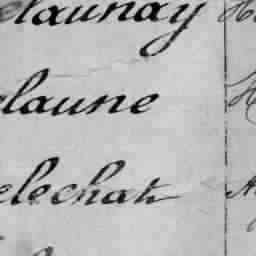 elaunay
elaune
elechat